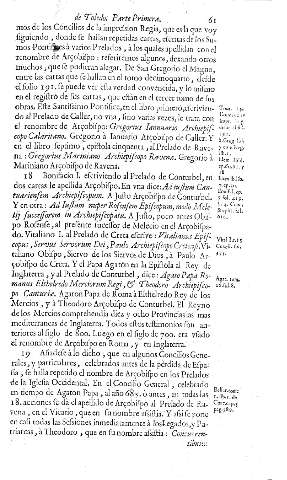 de Toledo. Parte Primera. 61
mos de los Concilios de la impression Regia, que es la que voy
siguiendo, donde se hallan repetidas cartas, escritas de los Su-
mos Pontifices à varios Prelados, à los quales apellidan con el
renombre de Arçobispo: referirèmos algunos, dexando otros
muchos, que se podieran alegar. De San Gregorio el Magno,
entre las cartas que se hallan en el tomo dezimoquarto, desde
el folio se puede ver esta verdad convencida, y lo mismo
en el registro de sus cartas, que estàn en el tercer tomo de sus
obras. Este Santissimo Pontifice, en el libro primero, escrivien-
do al Prelado de Caller, no vna, sino varias vezes, le trata con
el renombre de Arçobispo: Gregorius Ianuario Archiepis-
copo Calaritano. Gregorio à Ianuario Arçobispo de Caller. Y
en el libro septimo, epistola cinquenta, al Prelado de Raven-
na: Gregorius Mariniano Archiepiscopo Ravena. Gregorio à
Mariniano Arçobispo de Ravena.
18 Bonifacio I. escriviendo al Prelado de Conturbel, en
dos cartas le apellida Arçobispo. En vna dize: Ad Iustum Can-
tuariensem Archiepiscopum. A Justo Arçobispo de Conturbel.
Y en otra: Ad Iustum nuper Rofensem Episcopum, modo Melli-
ti successorem in Archiepiscopatu. A Justo, poco antes Obis-
po Rofense, al presente sucessor de Melcio en el Arçobispa-
do. Vitaliano I. al Prelado de Creta escrive: Vitalianus Epis-
copus, Servus Servorum Dei, Paulo Archiepiscopo Cretensi. Vi-
taliano Obispo, Siervo de los Siervos de Dios, à Paulo Ar-
çobispo de Creta. Y el Papa Agaton en la Epistola al Rey de
Inglaterra, y al Prelado de Conturbel, dize: Agato Papa Ro-
manus Elthelredo Merciorum Regi, & Theodoro Archiepisco-
po Cantuariæ. Agaton Papa de Roma à Elthelredo Rey de los
Mercios, y à Theodoro Arçobispo de Conturbel. El Reyno
de los Mercios comprehendia diez y ocho Provincias as mas
mediterraneas de Inglaterra. Todos estos testimonios son an-
teriores al siglo de 800. Luego en el siglo de 700. era vsado
el renombre de Arçobispo en Roma, y en Inglaterra.
19 Añadese à lo dicho, que en algunos Concilios Gene-
rales, y particulares, celebrados antes de la pèrdida de Espa-
ña, se halla repetido el nombre de Arçobispo en los Prelados
de la Iglesia Occidental. En el Concilio General, celebrado
en tiempo de Agaton Papa, al año 685. ò antes, en todas las
18. acciones se dà el apellido de Arçobispo al Prelado de Ra-
vena, en el Vicario, que en su nombre assistia. Y assi se pone
en casi todas las Sessiones inmediatamente à los Legados, y Pa-
triarcas, à Theodoro, que en su nombre assistia: Concurren-